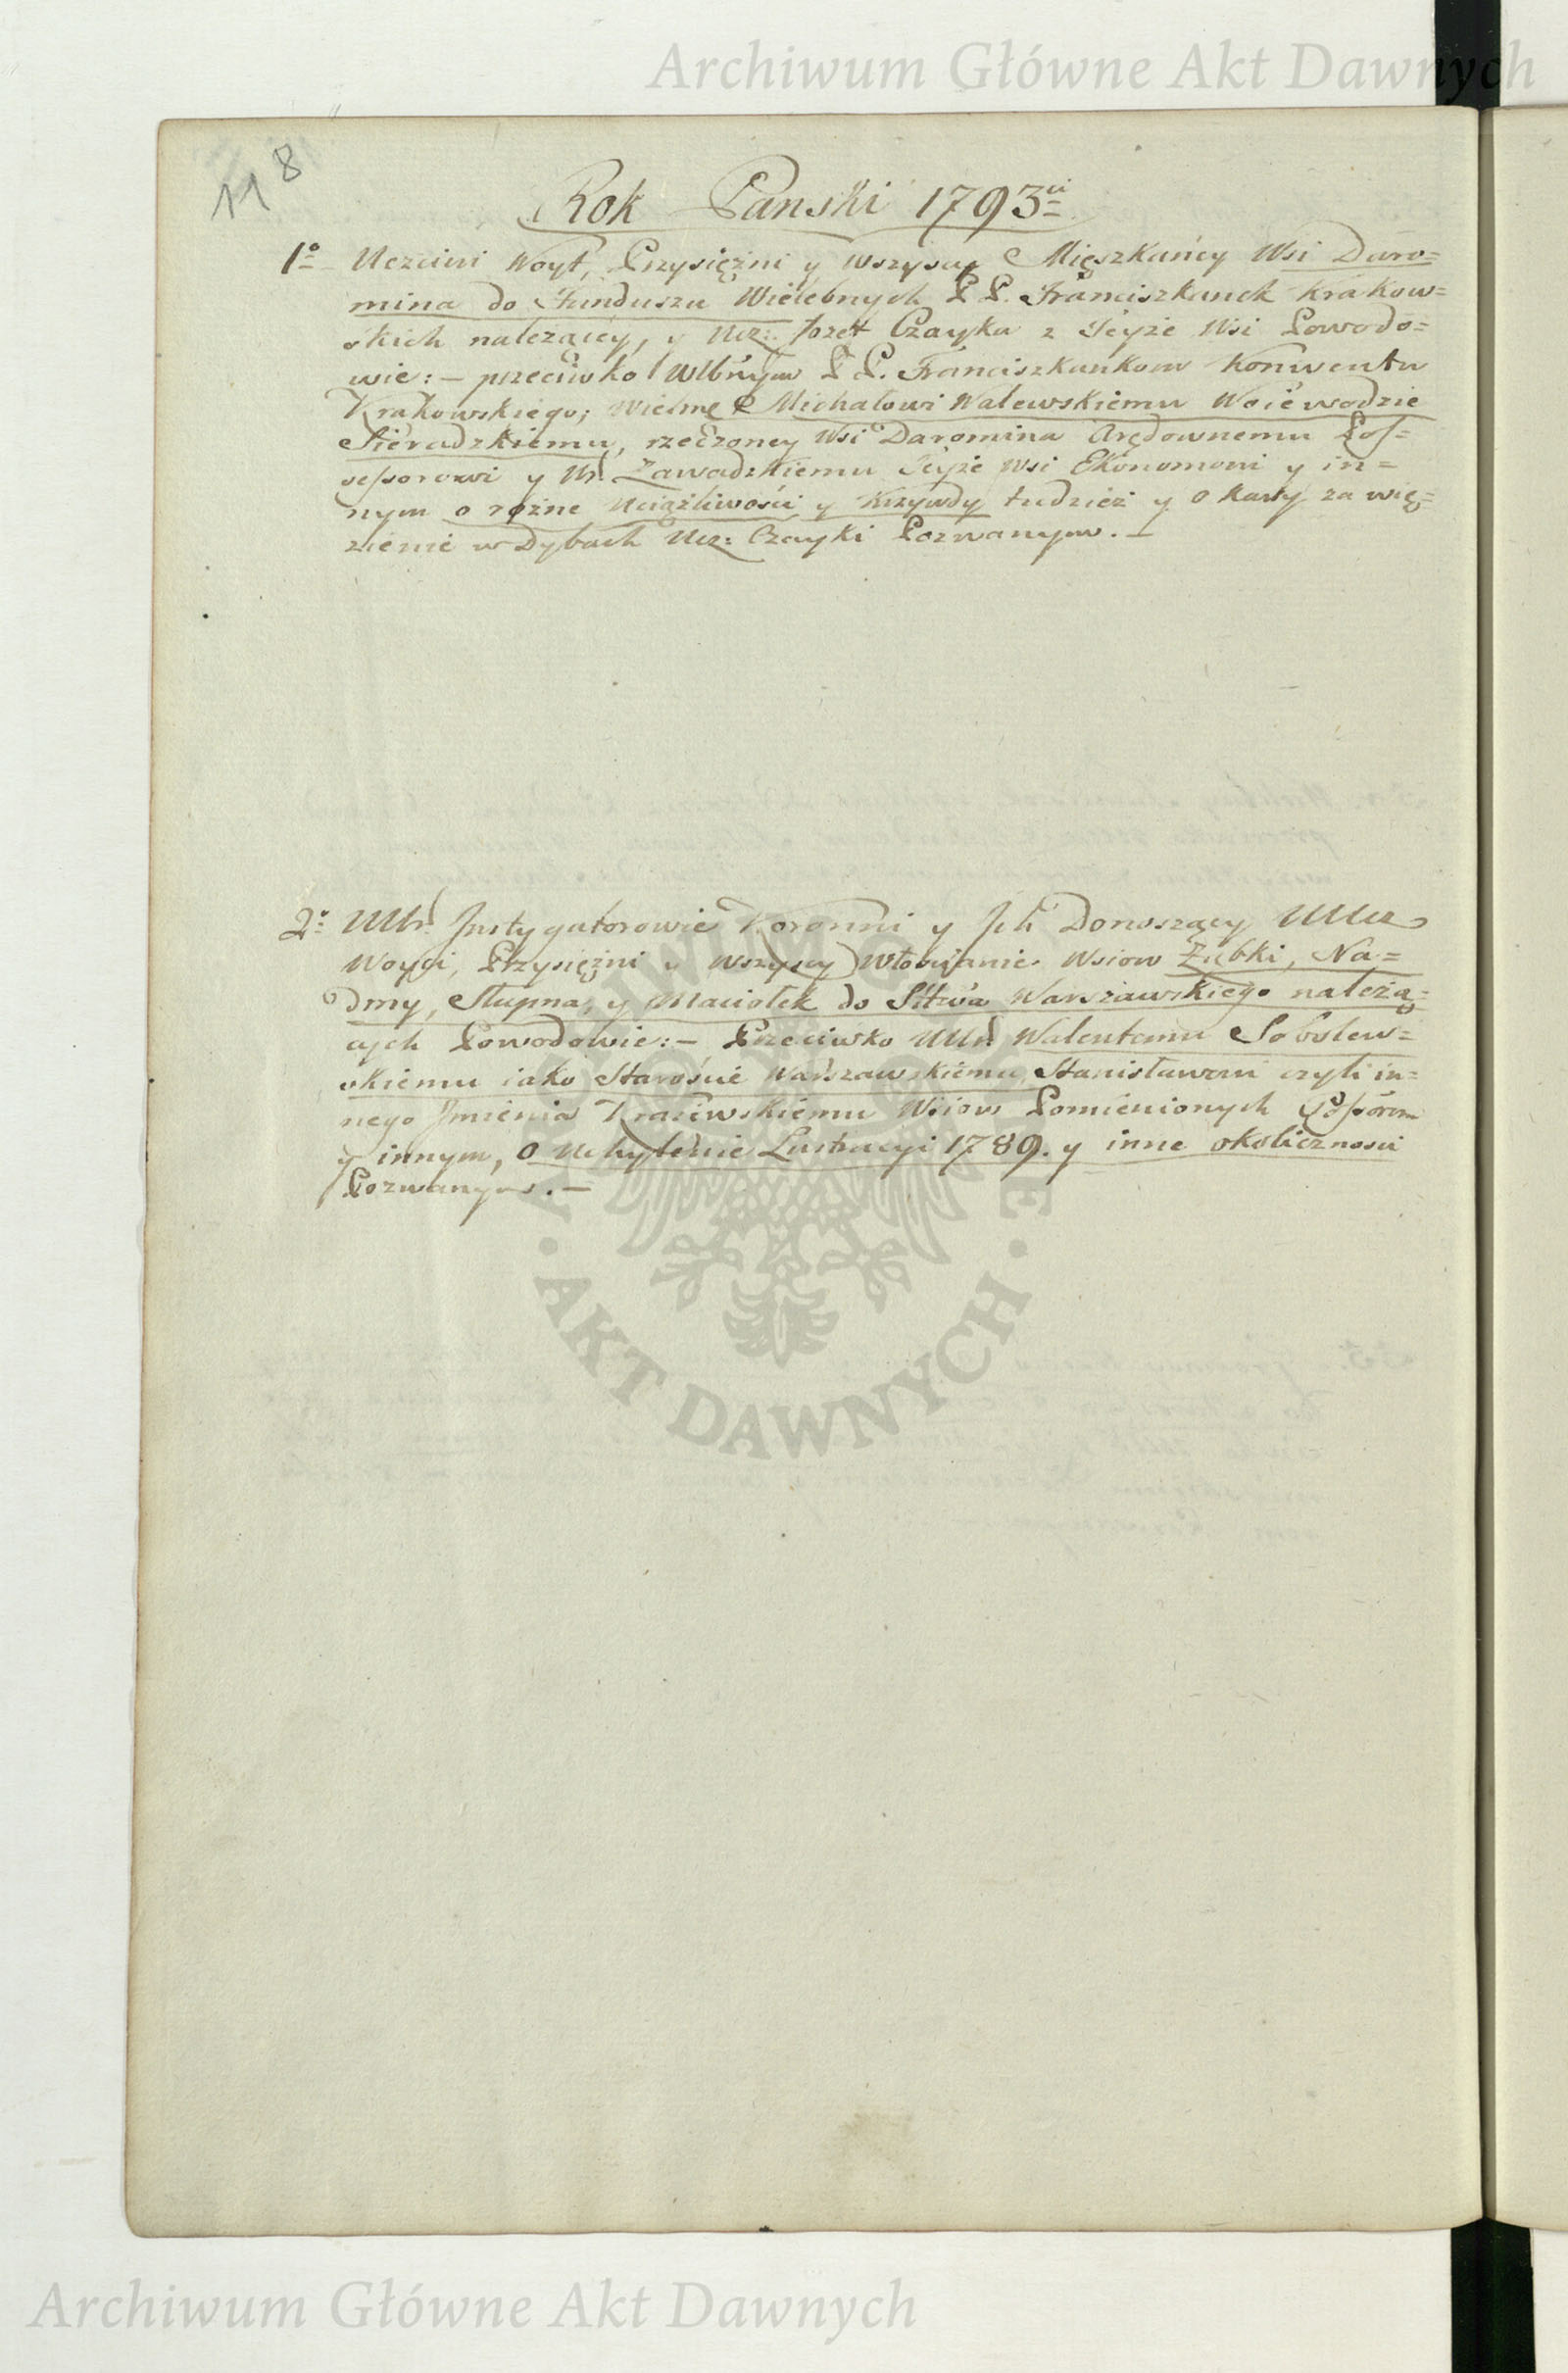 Archiwum Główne Akt Dawnych
118
Rok Panski 1793ci
1o Uczciwi Woyt, Przysiężni y wszyscy Mięszkańcy Wsi Daro=
mina do Funduszu Wielebnych P P. Franciszkanek Krakow=
skich należącey, y Ucz: Jozef Czayka z Teyże Wsi Powodo=
wie: – przeciwko Wlbnym P P. Franciszkankom Konwentu
Krakowskiego; Wielmę Michałowi Walewskiemu Woiewodzie
Sieradzkiemu, rzeczoney Wsi Daromina Arędownemu Pos=
sessorowi y Ur. Zawadzkiemu Teyże Wsi Ekonomowi y in=
nym o rożne uciążliwości y krzywdy tudzież y o kary za wię=
zienie w Dybach Ucz: Czayki Pozwanym. –
2o UUr. Instygatorowie Koronni y Ich Donoszący UUcz
Woyci, Przysiężni y wszyscy Włościanie Wsiow Ząbki, Na=
dmy, Słupna, y Maciołek do Sttwa Warszawskiego należą=
cych Powodowie: – Przeciwko UUr. Walentemu Sobolew=
skiemu iako Staroście Warszawskiemu, Stanisławowi czyli in=
nego Imienia Krasewskiemu Wsiow Pomienionych
y innym, o uchylenie Lustracyi 1789. y inne okoliczności
Pozwanym. –
ARCHIWUM GŁÓWNE
· AKT DAWNYCH ·
Archiwum Główne Akt Dawnych